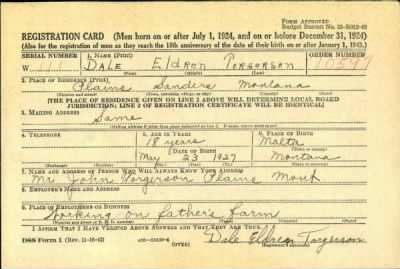 FORM APPROVED
Budget Bureau No. 33-R012-42
REGISTRATION CARD (Men born on or after July 1, 1924, and on or before December 31, 1924)
(Also for the registration of men as they reach the 18th anniversary of the date of their birth on or after January 1, 1943.)
SERIAL NUMBER 1. NAME (Print) ORDER NUMBER
W DALE ELDREN TORGERSON 10597
(First) (Middle) (Last)
2. PLACE OF RESIDENCE (Print)
Plains Sanders Montana
(Number and street) (Town, township, village, or city) (County) (State)
[THE PLACE OF RESIDENCE GIVEN ON LINE 2 ABOVE WILL DETERMINE LOCAL BOARD
JURISDICTION; LINE 2 OF REGISTRATION CERTIFICATE WILL BE IDENTICAL]
3. MAILING ADDRESS
Same
4. TELEPHONE 5. AGE IN YEARS 6. PLACE OF BIRTH
18 years Malta
DATE OF BIRTH (Town or county)
May 23 1927 Montana
(Exchange) (Number) (Mo.) (Day) (Yr.) (State or country)
7. NAME AND ADDRESS OF PERSON WHO WILL ALWAYS KNOW YOUR ADDRESS
Mr. John Torgerson Plains Mont
8. EMPLOYER'S NAME AND ADDRESS
9. PLACE OF EMPLOYMENT OR BUSINESS
Working on father's farm
(Number and street or R. F. D. number) (Town) (County) (State)
I AFFIRM THAT I HAVE VERIFIED ABOVE ANSWERS AND THAT THEY ARE TRUE.
DSS Form 1 (Rev. 11-16-42) (OVER) Dale Eldren Torgerson
(Registrant's signature)